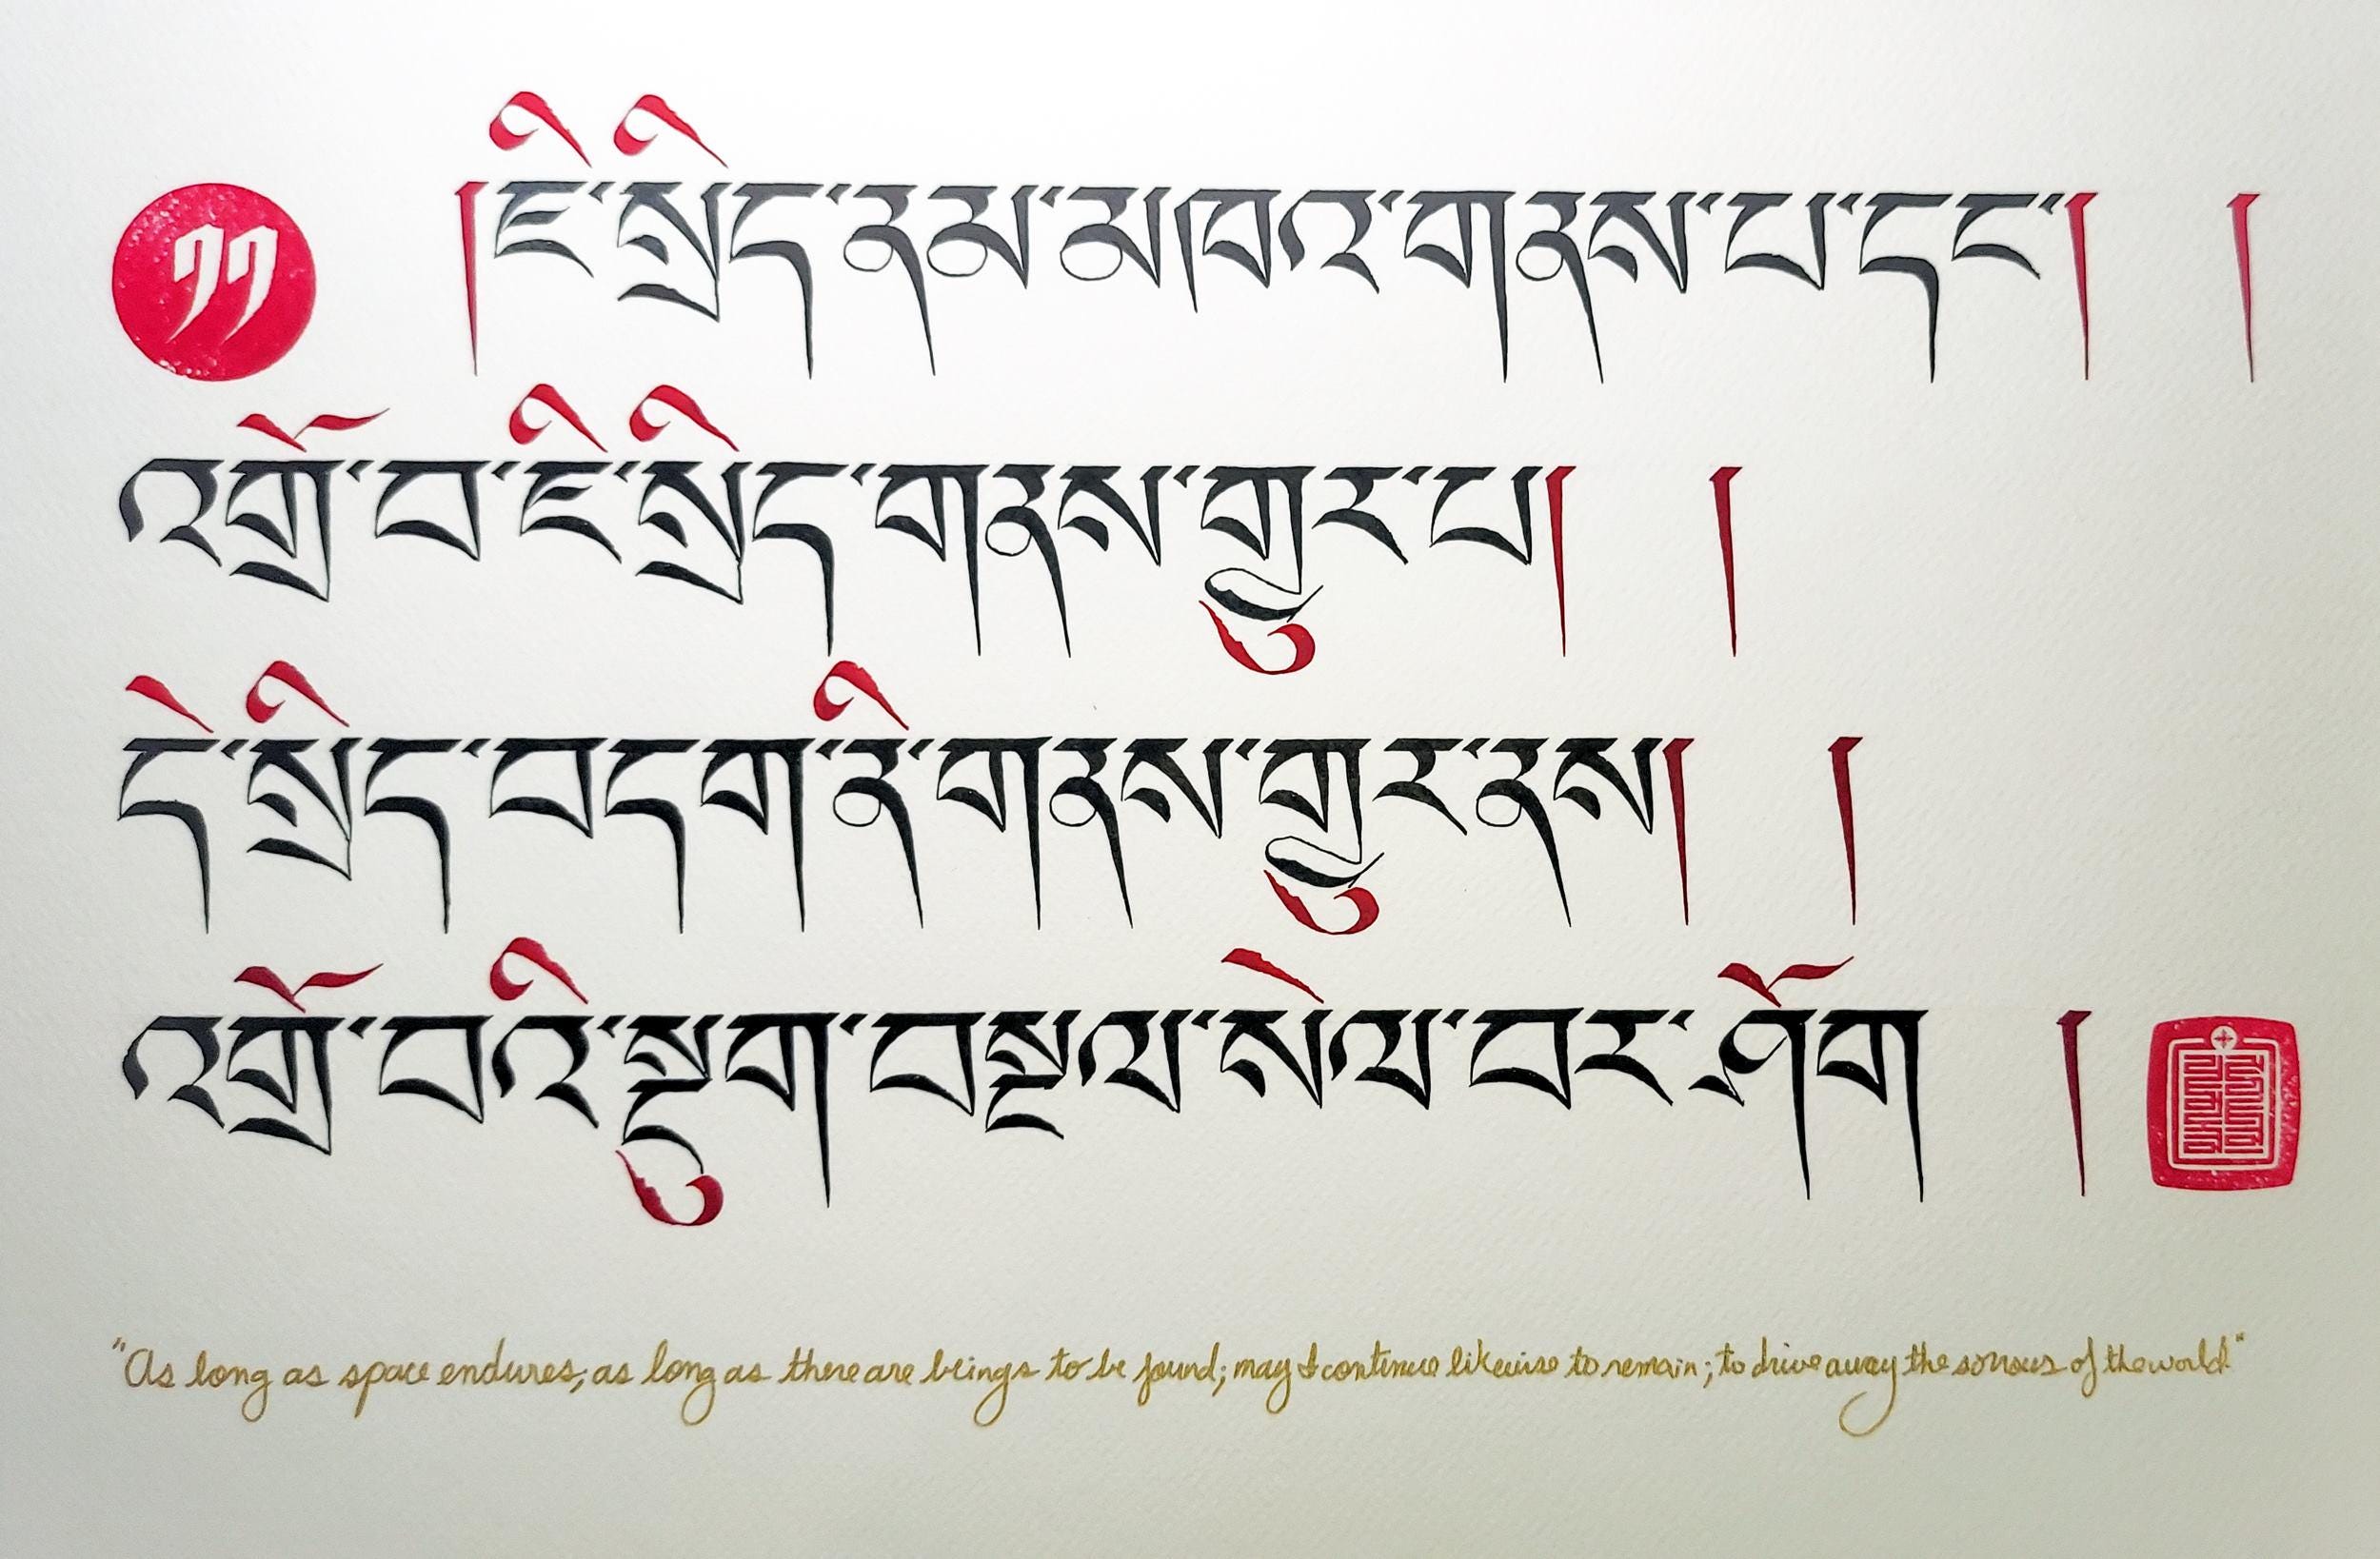 ། ཇི་སྲིད་ནམ་མཁའ་གནས་པ་དང་། །
འགྲོ་བ་ཇི་སྲིད་གནས་གྱུར་པ། །
དེ་སྲིད་བདག་ནི་གནས་གྱུར་ནས། །
འགྲོ་བའི་སྡུག་བསྔལ་སེལ་བར་ཤོག །
"As long as space endures; as long as there are beings to be found; may I continue likewise to remain; to drive away the sorrows of the world"